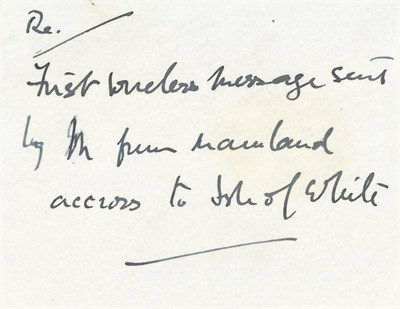 Re.
First wireless message sent
by M from mainland
accross to Isle of White